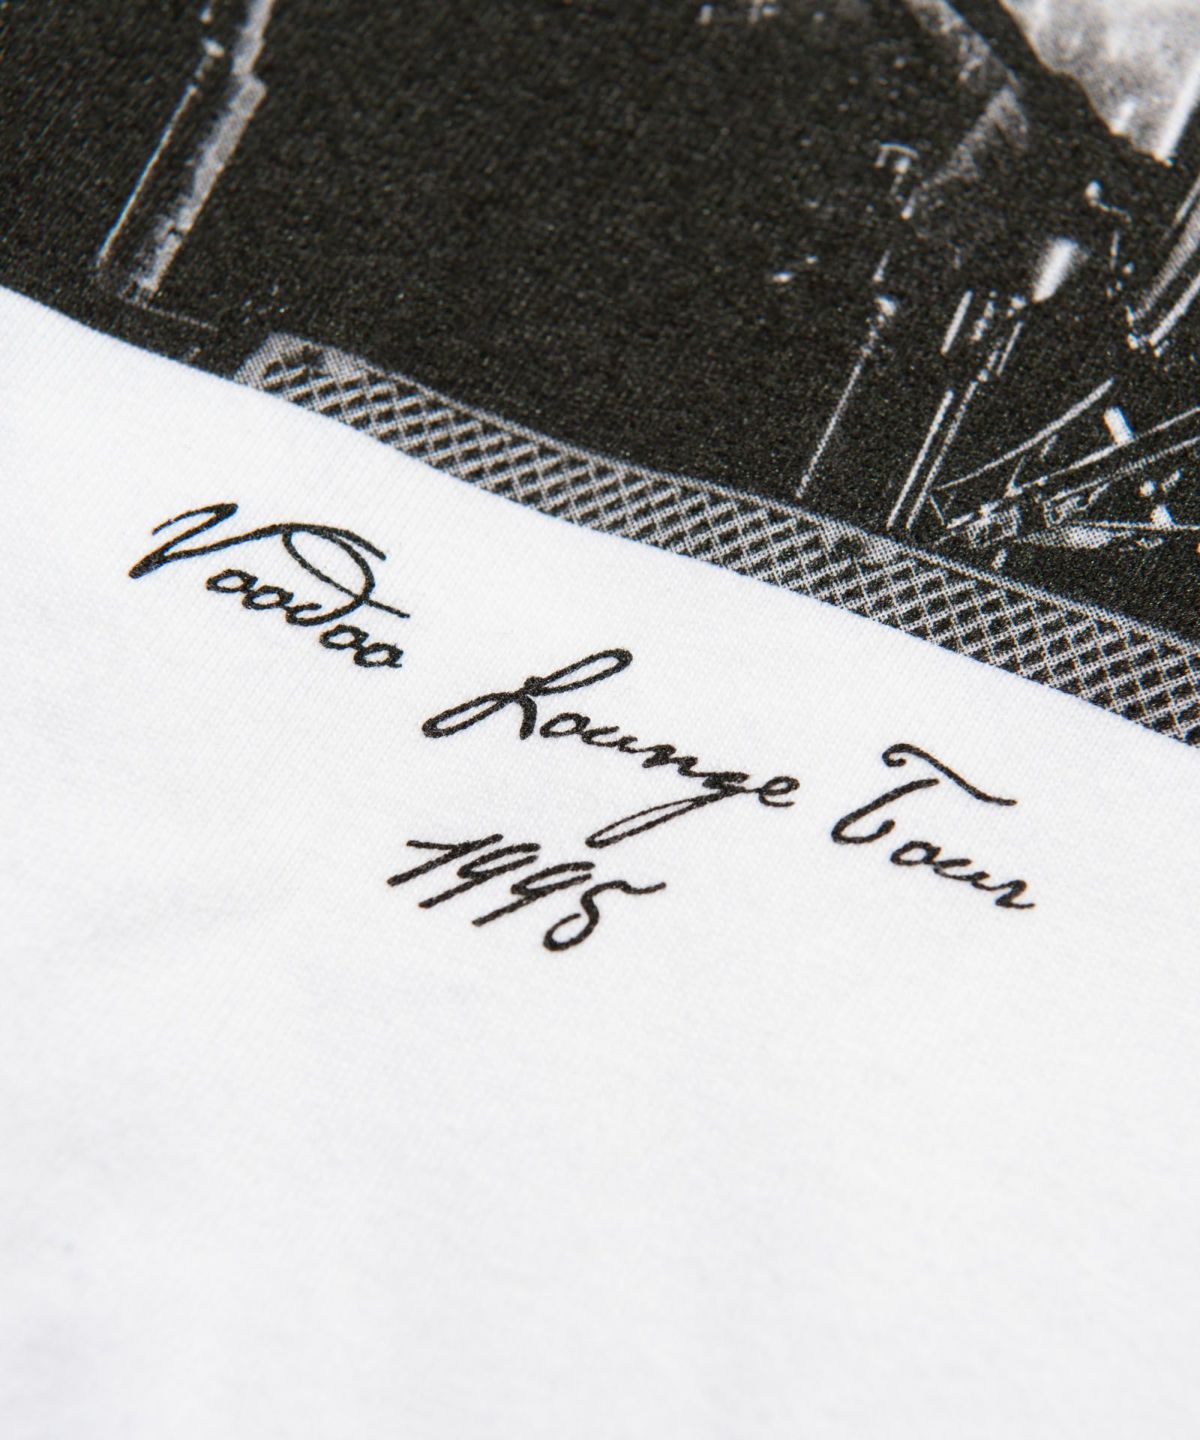 Voodoo Lounge Tour
1995